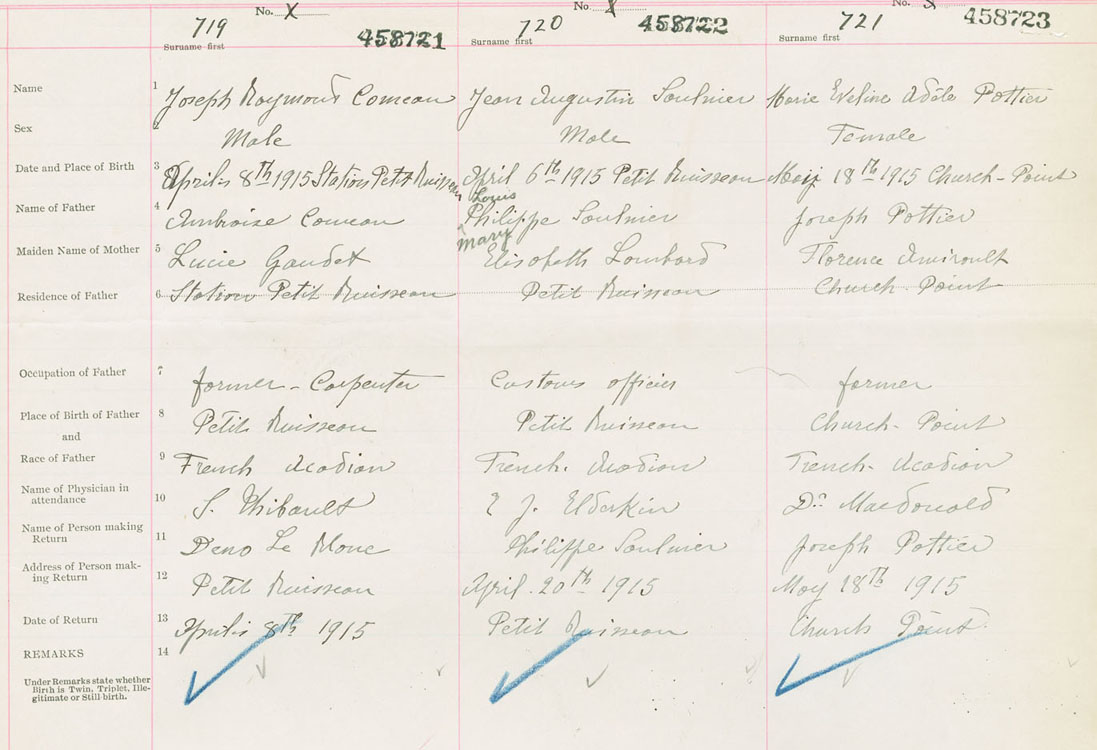 No. X No. X No. X
719 458721 720 458722 721 458723
Surname first Surname first Surname first
Name 1 Joseph Raymond Comeau Jean Augustin Soulnier Marie Eveline Adèle Pottier
Sex 2 Male Male Female
Date and Place of Birth 3 April 8th 1915 Station Petit Ruisseau April 6th 1915 Petit Ruisseau May 18th 1915 Church-Point
Louis
Name of Father 4 Ambroise Comeau Philippe Soulnier Joseph Pottier
Mary
Maiden Name of Mother 5 Lucie Gaudet Elisabeth Lombard Florence Amirault
Residence of Father 6 Station Petit Ruisseau Petit Ruisseau Church Point
Occupation of Father 7 farmer - Carpenter Customs officer farmer
Place of Birth of Father 8 Petit Ruisseau Petit Ruisseau Church-Point
and
Race of Father 9 French Acadian French. Acadian French-Acadian
Name of Physician in
attendance 10 S. Thibault E J. Elderkin Dr. MacDonald
Name of Person making
Return 11 Deno Le Blanc Philippe Soulnier Joseph Pottier
Address of Person mak-
ing Return 12 Petit Ruisseau April. 20th 1915 May 18th 1915
Date of Return 13 April 8th 1915 Petit Ruisseau Church Point
REMARKS 14
Under Remarks state whether
Birth is Twin, Triplet, Ille-
gitimate or Still-birth.